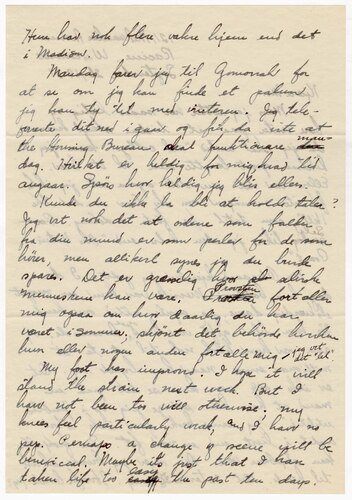 Hun har nok flere vakre hjem end det
i Madison.
Mandag farer jeg til Gomorrah for
at se om jeg kan finde et
jeg kan ty til med vinteren. Jeg tele-
foneste dit ned i gaar og fik da vite at
the Housing Bureau skal funktionere man-
dag. Hvilket er heldig for mig hvad tid
angaar. Spørs hvor heldig jeg blir, ellers.
Kunde du ikke la bli at holde taler?
Jeg vet nok det at ordene som falder
fra din mund er som perler for de som
hører, men allikevel synes jeg du burde
spares. Det er græmelig hvor slivske
menneskene kan være. Froste fortaller
mig ogsaa om hvor daarlig du har
været i sommer, skjønt det behøvde hverken
hun eller nogen anden fortalle mig, jeg vet
det "lel"
My foot has improved. I hope it will
stand the strain, next week. But I
have not been too well otherwise, my
knees feel particularly weak, and I have no
pep. Perhaps a change of scene will be
benificial. Maybe it's just that I have
taken life too easy the past ten days.